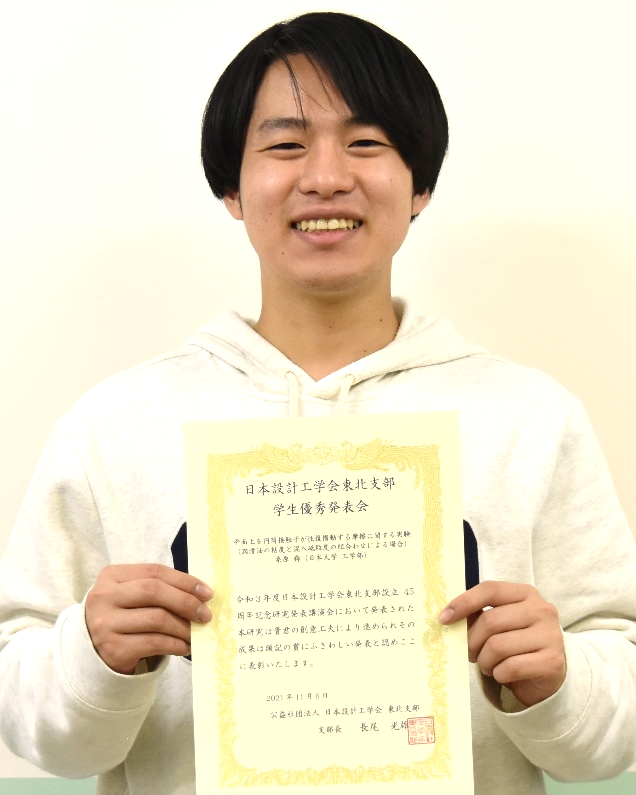 日本設計工学会東北支部
学生優秀発表会
平面上を円筒接触子が往復摺動する摩擦に関する実験
(潤滑法の粘度と混入砥粒度の組合わせによる場合)
(日本大学 工学部)
令和3年度日本設計工学会東北支部設立 45
周年記念研究発表講演会において発表された
本研究は貴君の創意工夫により進められその
成果は頭記の賞にふさわしい発表と認めここ
に表彰いたします。
2021年11月6日
公益社団法人 日本設計工学会 東北支部
支部長 長尾 光雄